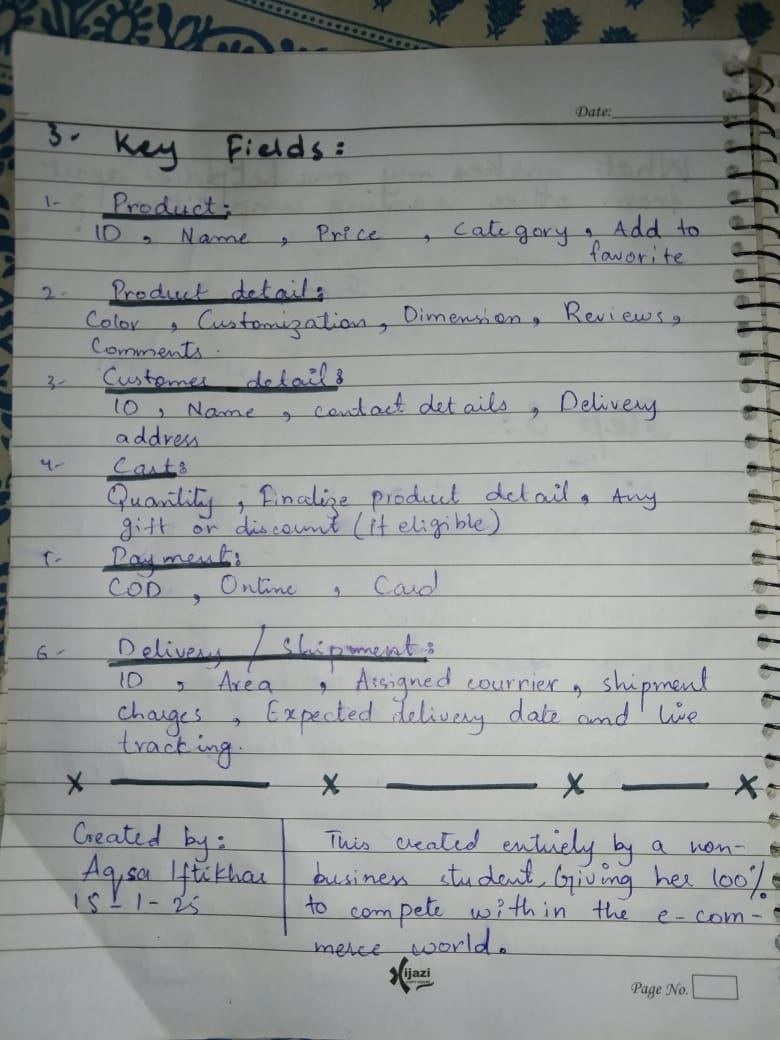 Date:
3- Key Fields:
1- Product:
ID, Name, Price, Category, Add to
favorite
2- Product detail:
Color, Customization, Dimension, Reviews,
Comments.
3- Customer detail:
ID, Name, contact details, Delivery
address
4- Cart:
Quantility, Finalize product detail, Any
gift or discount (if eligible)
5- Payment:
COD, Online, Card
6- Delivery / Shipment:
ID, Area, Assigned courrier, shipment
charges, Expected delivery date and live
tracking.
x ——— x ——— x ——— x
Created by:
Aqsa Iftikhar
15-1-25
This created entirely by a non-
business student, Giving her 100%
to compete within the e-com-
merce world.
Xijazi
Page No.